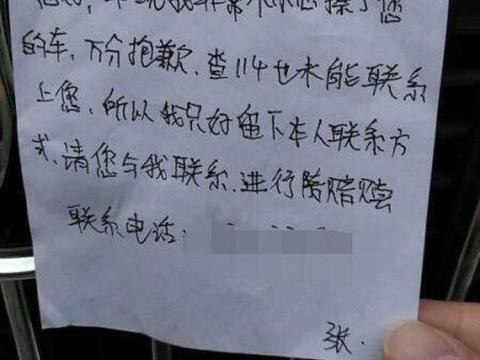 我非常不小心擦了您
的车,万分抱歉.查114也未能联系
上您,所以我只好留下本人联系方
式,请您与我联系.进行陪赔偿
联系电话:
张.